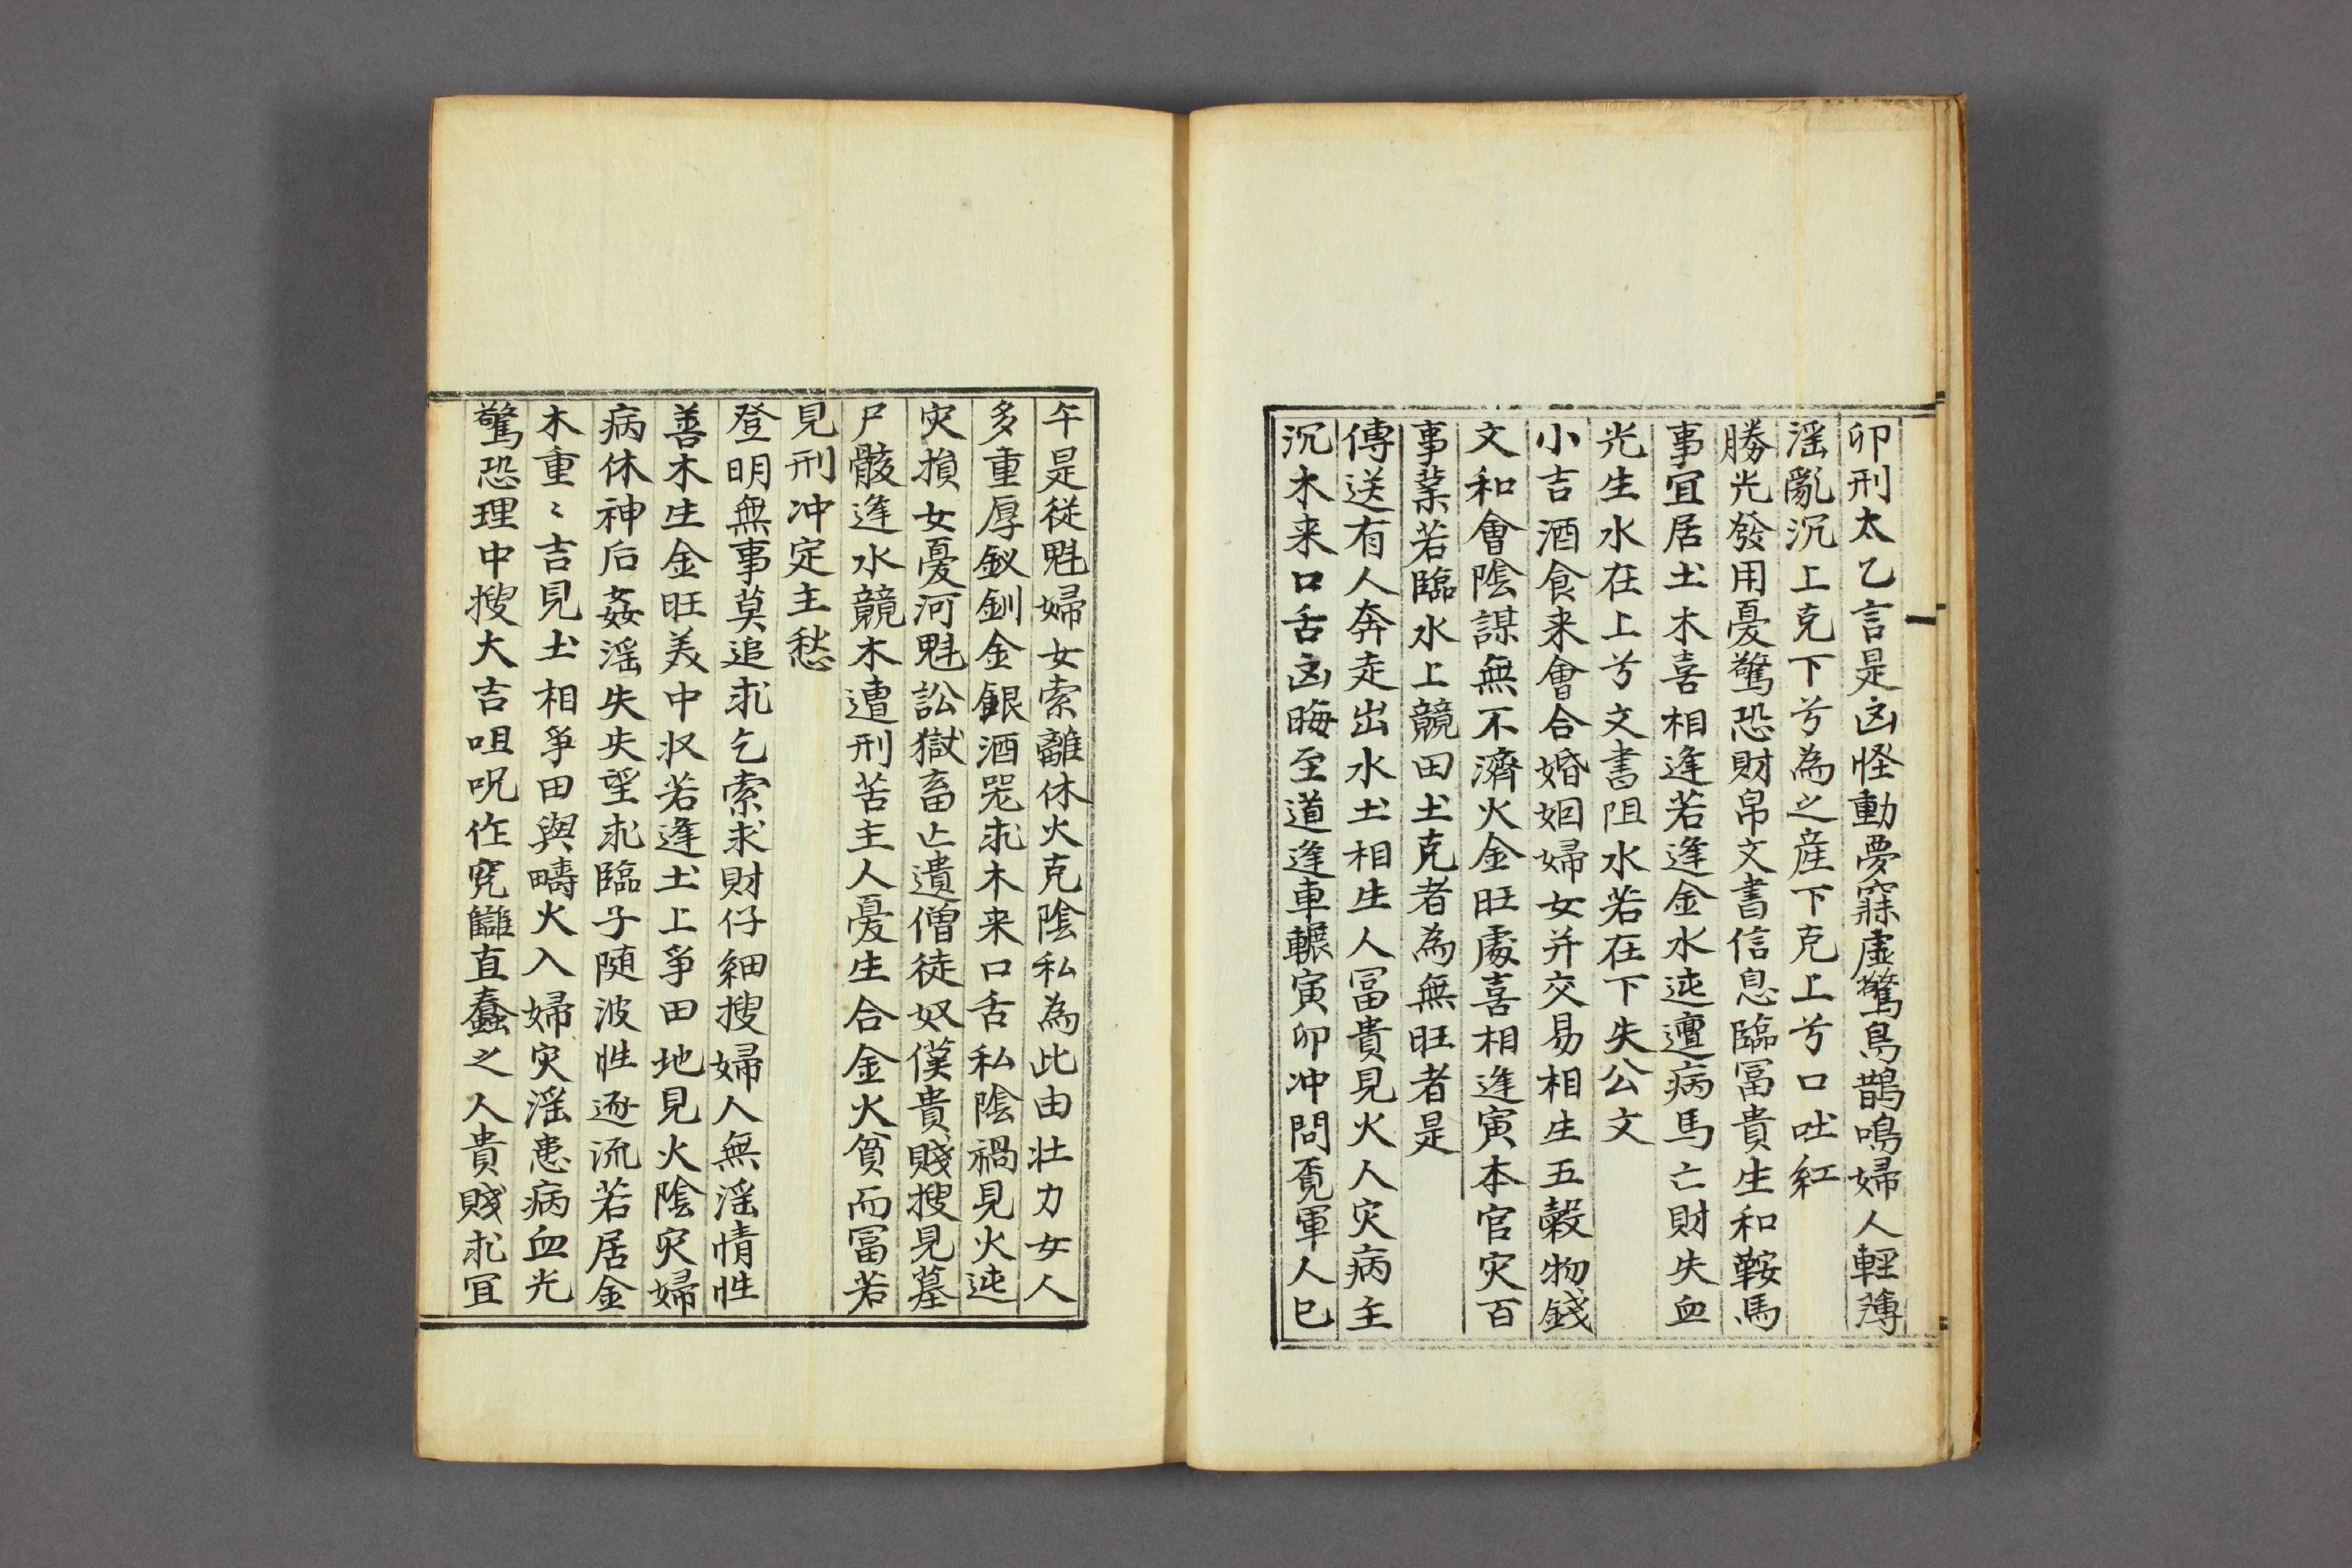 卯刑太乙言是凶怪動夢寐虛驚鳥鵲鳴婦人輕薄
淫亂沉上克下兮為之産下克上兮口吐紅
勝光發用憂驚恐財帛文書信息臨冨貴生和鞍馬
事宜居土木喜相逢若逢金水迍邅病馬亡財失血
光生水在上兮文書阻水若在下失公文
小吉酒食来會合婚姻婦女并交易相生五穀物錢
文和會陰謀無不濟火金旺處喜相逢寅本官灾百
事業若臨水上競田土克者為無旺者是
傳送有人奔走出水土相生人冨貴見火人灾病主
沉木来口舌凶晦至道逢車輾寅卯冲問覔軍人巳
午是従魁婦女索離休火克陰私為此由壮力女人
多重厚釵釧金銀酒器求木来口舌私陰禍見火迍
灾損女憂河魁訟獄畜亡遺僧徒奴僕貴賤搜見墓
尸骸逢水競木遭刑苦主人憂生合金火貧而冨若
見刑冲定主愁
登明無事莫追求乞索求財仔細搜婦人無淫情性
善木生金旺美中収若逢土上爭田地見火陰灾婦
病休神后姦淫失失望求臨子随波性逐流若居金
木重〻吉見土相爭田與疇火入婦灾淫患病血光
驚恐理中搜大吉咀呪作寃讎直蠢之人貴賤求宜